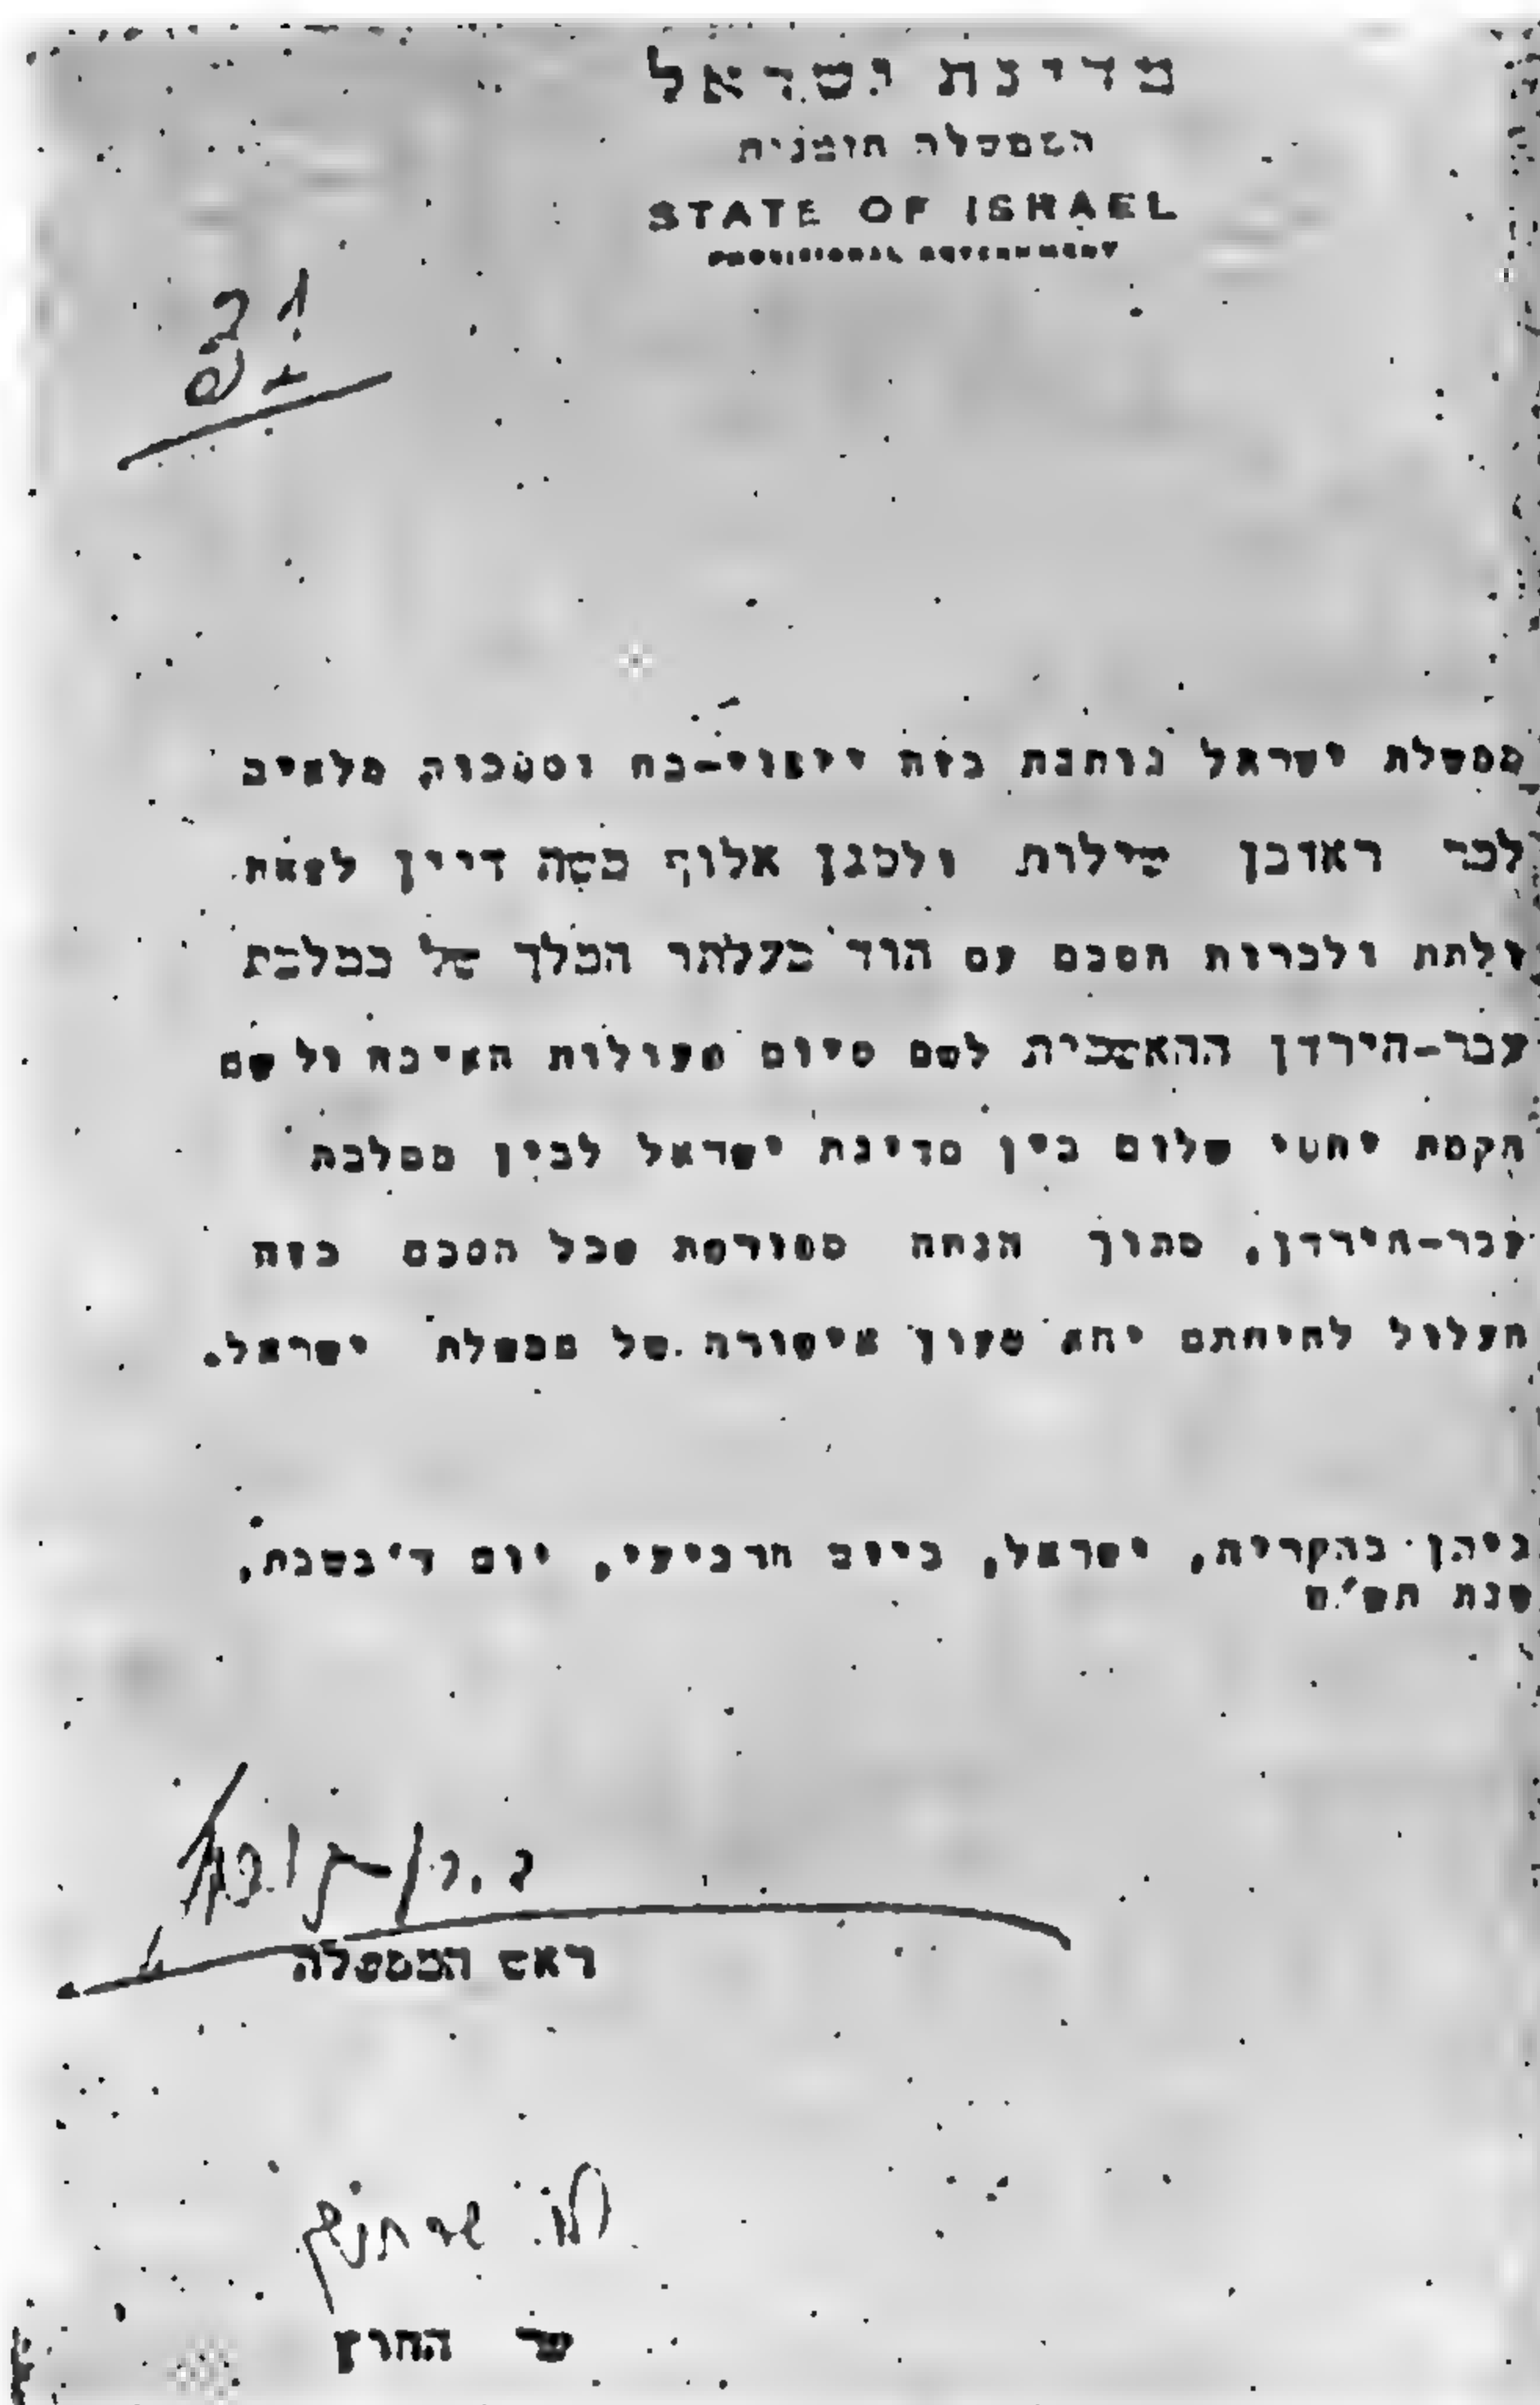 מדינת ישראל
הממשלה הזמנית
STATE OF ISRAEL
PROVISIONAL GOVERNMENT
ממשלת ישראל נותנת בזה ייפוי-כח וסמכות מלאים
לכר ראובן שילוח ולסגן אלוף משה דיין לשאת
ולתת ולכרות הסכם עם הוד מעלתו המלך של ממלכת
עבר-הירדן ההאשמית לשם סיום פעולות האיבה ולשם
הקמת יחסי שלום בין מדינת ישראל לבין ממלכת
עבר-הירדן, מתוך הנחה מפורשת שכל הסכם כזה
העלול להיחתם יהא טעון אישורה של ממשלת ישראל.
ניתן בהקריה, ישראל, ביום הרביעי, יום ד' בטבת,
שנת תש"ט
ד. בן-גוריון
ראש הממשלה
מ. שרתוק
שר החוץ